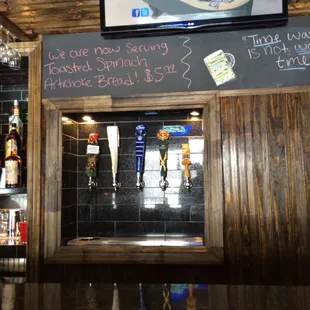 We are now Serving
Toasted Spinach
Artichoke Bread! $5.99
"Time
is not
time